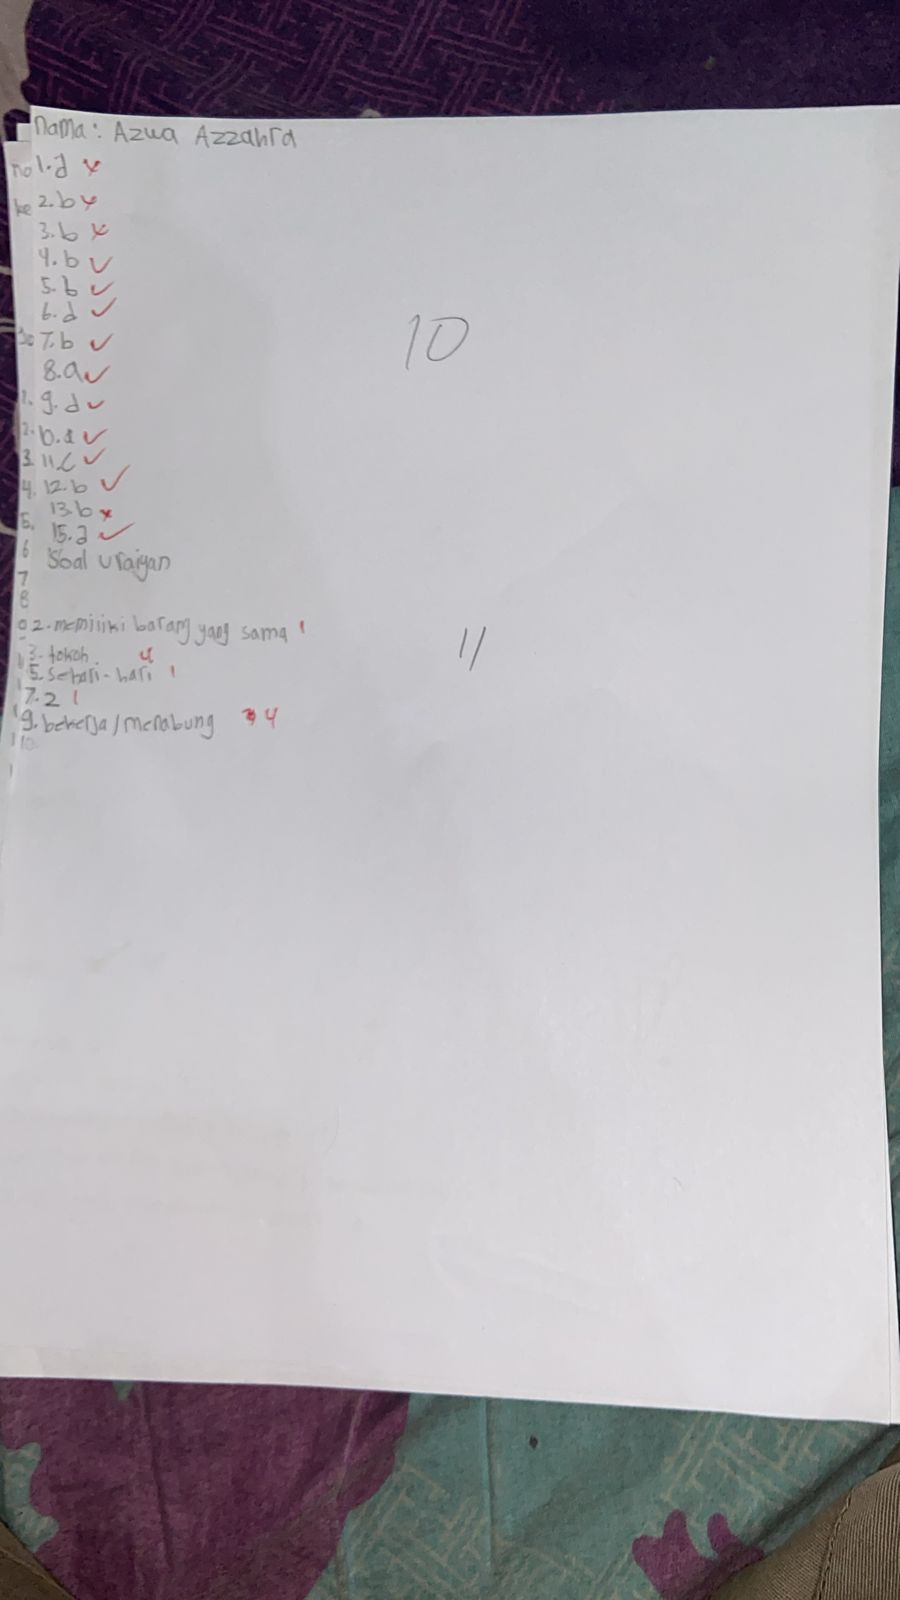 Nama: Azwa Azzahra
1.d
2.b
3.b
4.b
5.b
6.d
7.b
8.a
9.d
b.d
11.c
12.b
13.b
15.d
Soal uraiyan
2. memiliki barang yang sama 1
3. tokoh 4
5. sehari-hari 1
7. 2 1
9. bekerja/menabung 4
10
11
no
ke
30
1.
2.
3.
4.
5.
6
7
8
10.